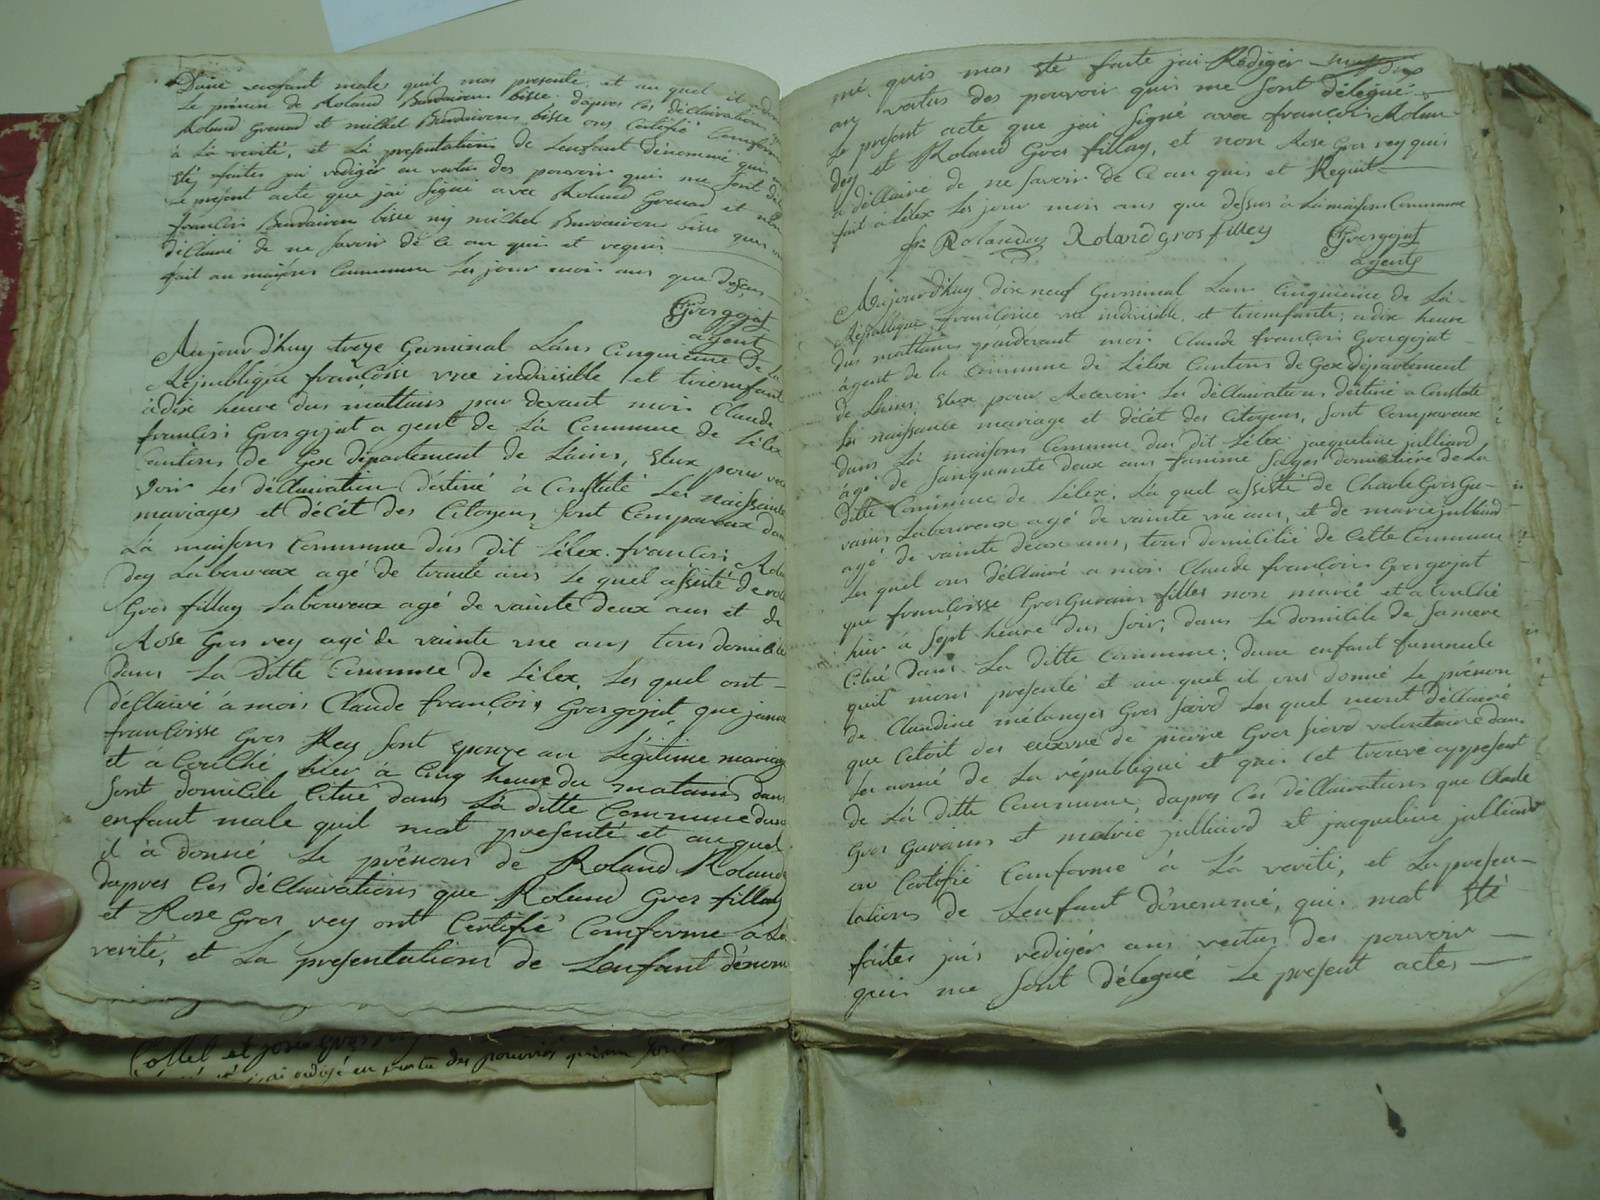 Dune enofant male quil mas presenté et au quel il
Le prénon de Roland Burdairon bisse dapres les déclairations
Roland Grenad et milhel Burdairon bisse ons Certifié Comforme
à Là verité, et Là presentations de Lenfant dénommé quis
été faites jai redigér en vertus des pouvoir quis me sont
Le present acte que jai signé avec Roland Grenad et
francois Burdairon bisse nij milhel Burdairon bisse quis
déclairé de ne savoir dé le au quis et requis
fait au maisons Commune Les jour mois ans que desus
Grosgojat
agent
Aujourd'huy treze Germinal Lans Cinquieme de La
République françoise vne indivisible et trionfant
à dix heure dus mattains par devant mois Claude
francois Grosgojat agent de Là Commune de Lélex
Cantons de Gex département de Lains, Elux pour
voir Les déclairation déstiné à Constaté Les naissance
mariages et décét des Citoyens sont Comparaux dans
Là maisons Commune dus dit Lélex francois
dey Laboureux agé de trante ans Le quel assisté de
Gros fillay Laboureux agé de vainte deux ans et de
Rose Gros rey agé de vainte vne ans tous domicilié
dans La ditte Commune de Lélex, Les quel ont
déclairé à mois Claude françois Grosgojat que
francoisse Gros Rey sont epouze au Légitime mariage
et à Couché hier à Cinq heure du matains dans
sont domicile Citué dans Là ditte Commune dune
enfant male quil mat presenté et au quel
il à donné Le prénons de Roland Roland
dapres Les déclairations que Roland Gros fillay
et Rose Gros rey ont Certifié Comforme à La
verité, et La presentations de Lenfant dénom
mé quis mas été faite jai Rediger
au vertus des pouvoir quis me sont délegué
Le present acte que jai signé avec françois Rolan
dey et Roland Gros fillay, et non Rose Gros rey quis
a déclairé de ne savoir de le au quis et Requit
fait à Lélex Les jour mois ans que dessus à Là maisons Commune
fr: Rolandez Roland gros filley Grosgojat
agent
Aujourd'huy dix neuf Germinal Lans Cinquieme de Là
République francoise vne indivisible et trionfante; à dix heure
dus mattains pardevant mois Claude francois Grosgojat
agent de la Commune de Lélex Cantons de Gex département
de Lains, Elux pour Recevoir Les déclairations déstiné à Constaté
Les naissance mariage et décét des Citoyens, sont Comparaux
dans Là maisons Commune dus dit Lélex jacqueline julliard
agé de sainquante deux ans famme sages domicilière de La
ditte Commune de Lélex. Là quel assisté de Charle Gros Gu-
rains Laboureux agé de vainte vne ans, et de marie julliard
agé de vainte deux ans, tous domicilié de Cette Commune
Les quel ons déclairé a mois Claude francois Grosgojat
que françoisse Gros Gurains filles non marié et à Couché
hier à sept heure dus soir, dans Le domicile de sa mere
Citué dans La ditte Commune; dune enfant fummele
quil mons presenté et au quel il ons donné Le prénon
de Claudine mélanges Gros fiord Les quel mont déclairé
que Cétoit des euxvré de pierre Gros fiord volontaire dans
Les armé de La république et quis Cet trouvé appresent
de Là ditte Commune, dapres Les déclairations que Charle
Gros Gurains et marie julliard et jacqueline julliard
on Certifié Comforme à Là verité, et La presen-
tations de Lenfant dénommé, quis mat été
faites jais redigér ans vertus des pouvoir
quis me sont délegué Le present actes
Collet et
rédigé en vertu des pouvoirs qui me sont